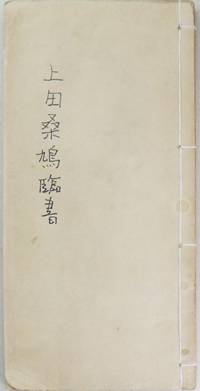 上田桑鳩臨書